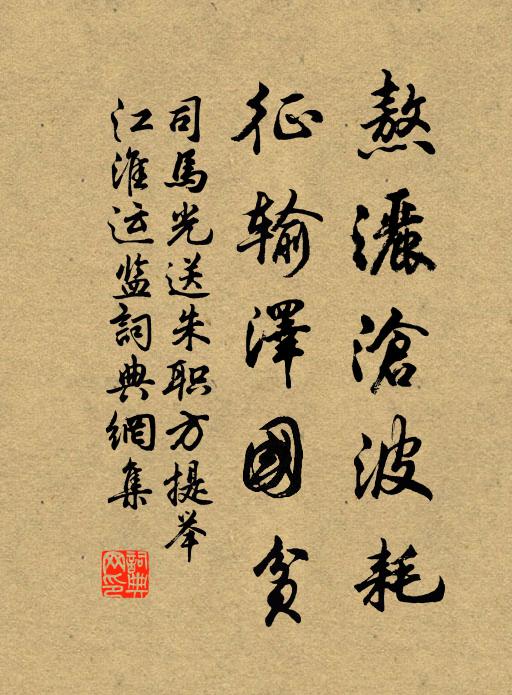 熬灑滄波耗
征输澤國貧
司馬光送朱职方提举
江淮运监詞典網集
詞典
网印